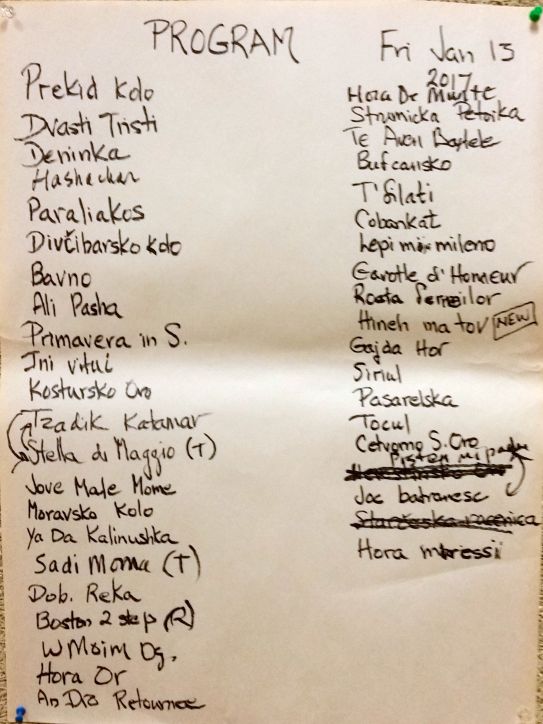 PROGRAM
Fri Jan 13
2017
Prekid Kolo
Dvasti Tristi
Deninka
Hashachar
Paraliakos
Divčibarsko kolo
Bavno
Ali Pasha
Primavera in S.
Ini vitui
Kostursko Oro
Tzadik Katamar
Stella di Maggio (T)
Jove Male Mome
Moravsko Kolo
Ya Da Kalinushka
Sadi Moma (T)
Dob. Reka
Boston 2 step (R)
W Moim Og.
Hora Or
An Dro Retournee
Hora De Munte
Strumicka Petorka
Te Aven Baxtale
Bufcansko
T'filati
Cobankat
Lepi moj mileno
Gavotte d'Honneur
Roata Femeilor
Hineh ma tov NEW
Gajda Hor
Siriul
Pasarelska
Tocul
Cetvorno S. Oro
Pistem mi padu
Joc batranesc
Starčeska racenica
Hora miresii